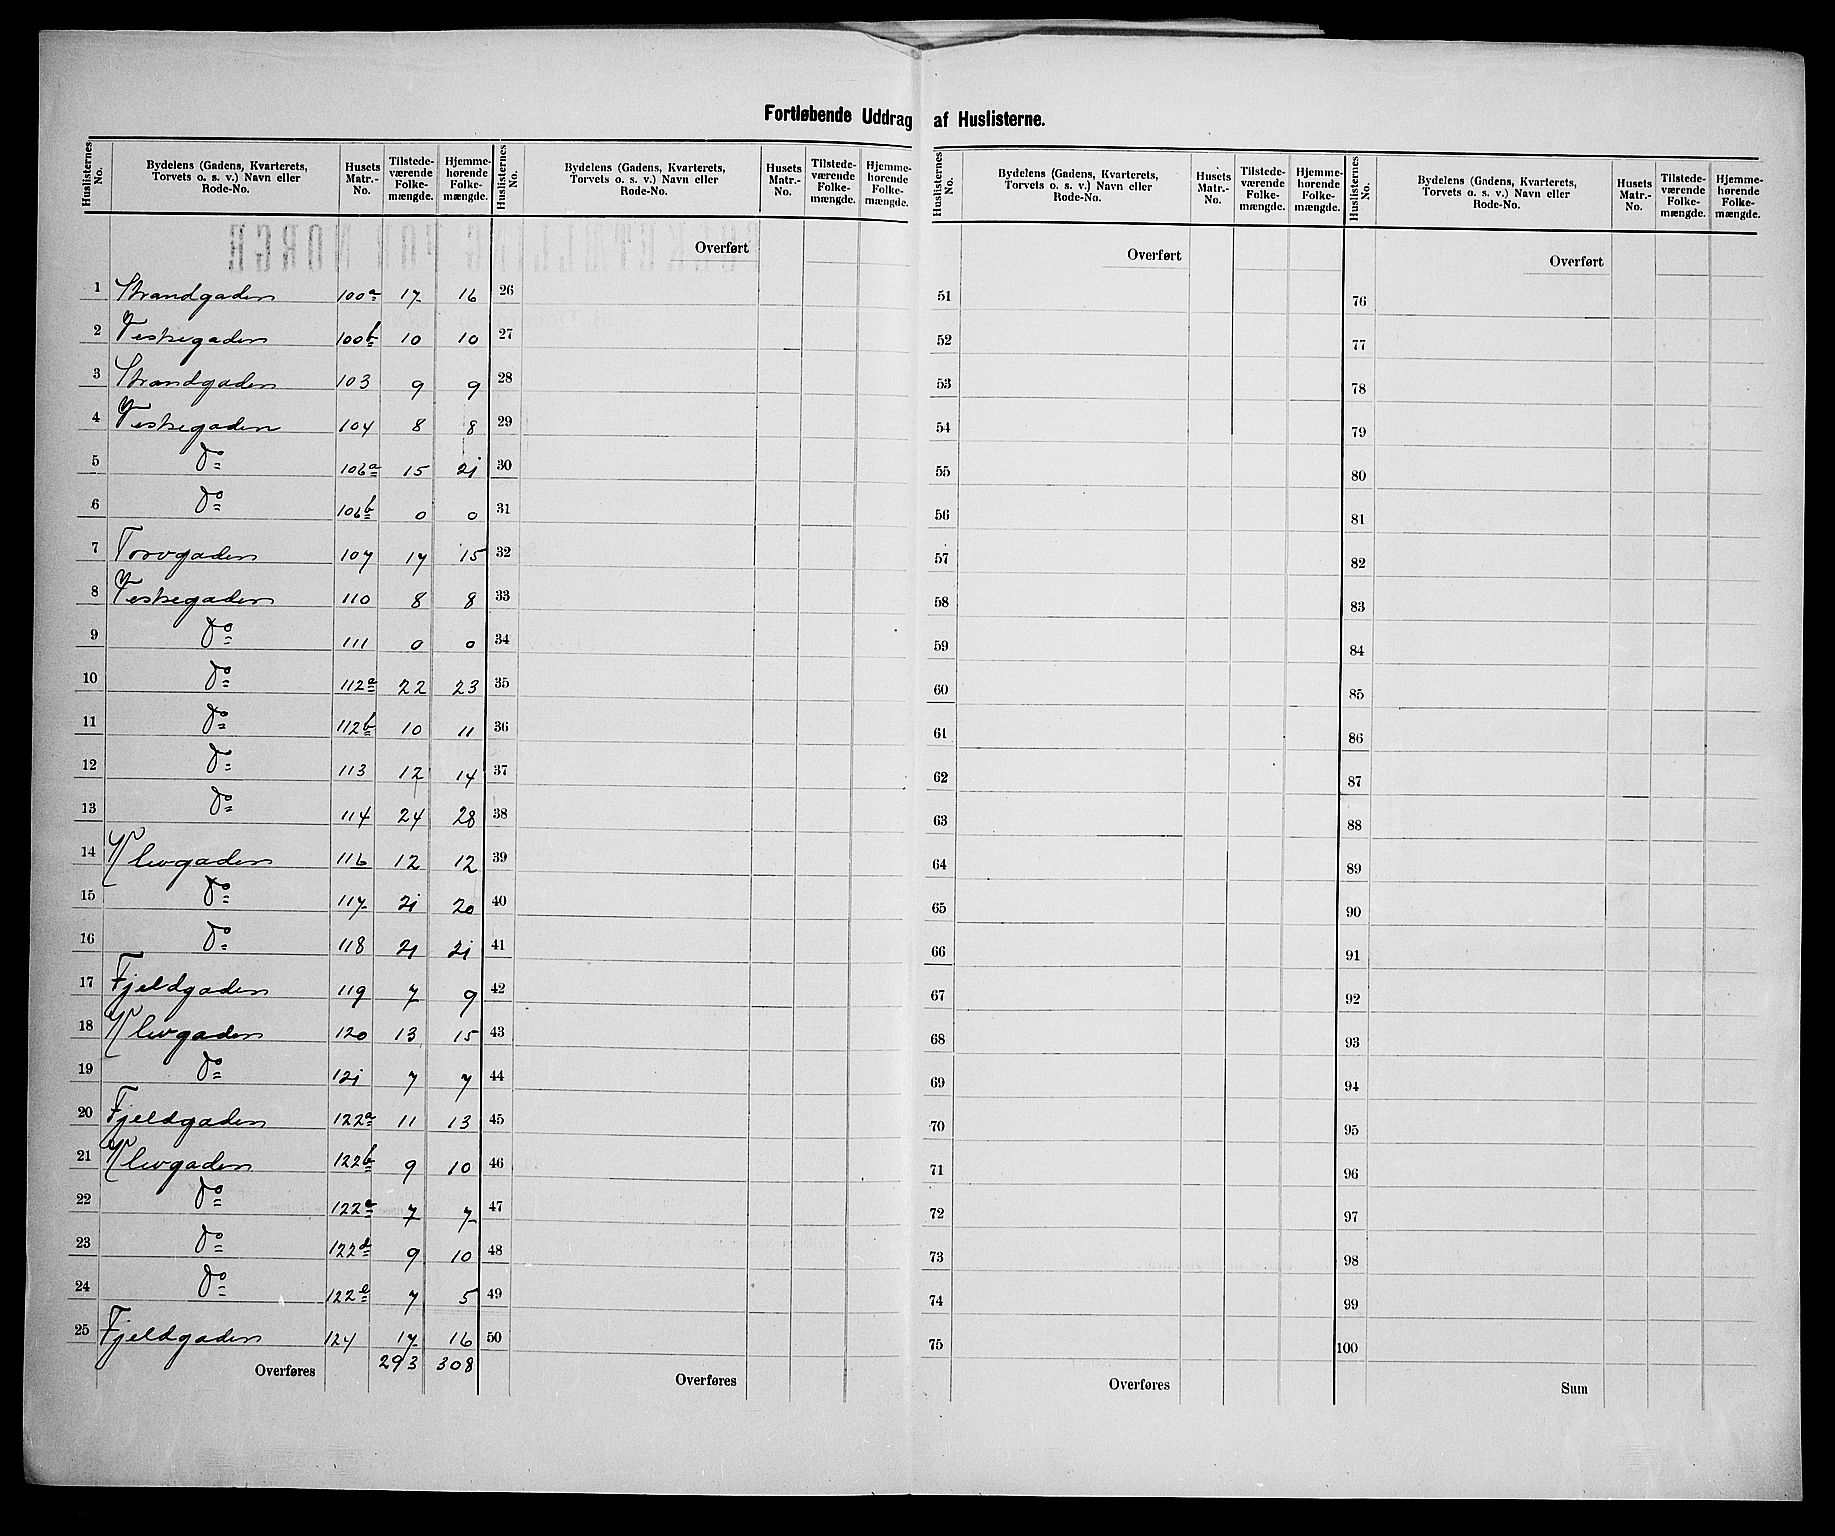 Fortløbende Uddrag af Huslisterne.
Huslisternes No. | Bydelens (Gadens, Kvarterets, Torvets o. s. v.) Navn eller Rode-No. | Husets Matr.-No. | Tilstedeværende Folkemængde. | Hjemmehørende Folkemængde.
Huslisternes No. | Bydelens (Gadens, Kvarterets, Torvets o. s. v.) Navn eller Rode-No. | Husets Matr.-No. | Tilstedeværende Folkemængde. | Hjemmehørende Folkemængde.
Huslisternes No. | Bydelens (Gadens, Kvarterets, Torvets o. s. v.) Navn eller Rode-No. | Husets Matr.-No. | Tilstedeværende Folkemængde. | Hjemmehørende Folkemængde.
Huslisternes No. | Bydelens (Gadens, Kvarterets, Torvets o. s. v.) Navn eller Rode-No. | Husets Matr.-No. | Tilstedeværende Folkemængde. | Hjemmehørende Folkemængde.
Overført Overført Overført
1 Strandgaden 100a 17 16 26 51 76
2 Vestregaden 100b 10 10 27 52 77
3 Strandgaden 103 9 9 28 53 78
4 Vestregaden 104 8 8 29 54 79
5 Do 106a 15 21 30 55 80
6 Do 106b 0 0 31 56 81
7 Torvgaden 107 17 15 32 57 82
8 Vestregaden 110 8 8 33 58 83
9 Do 111 0 0 34 59 84
10 Do 112a 22 23 35 60 85
11 Do 112b 10 11 36 61 86
12 Do 113 12 14 37 62 87
13 Do 114 24 28 38 63 88
14 Klevgaden 116 12 12 39 64 89
15 Do 117 21 20 40 65 90
16 Do 118 21 21 41 66 91
17 Fjeldgaden 119 7 9 42 67 92
18 Klevgaden 120 13 15 43 68 93
19 Do 121 7 7 44 69 94
20 Fjeldgaden 122a 11 13 45 70 95
21 Klevgaden 122b 9 10 46 71 96
22 Do 122c 7 7 47 72 97
23 Do 122d 9 10 48 73 98
24 Do 122e 7 5 49 74 99
25 Fjeldgaden 124 17 16 50 75 100
Overføres 293 308 Overføres Overføres Sum